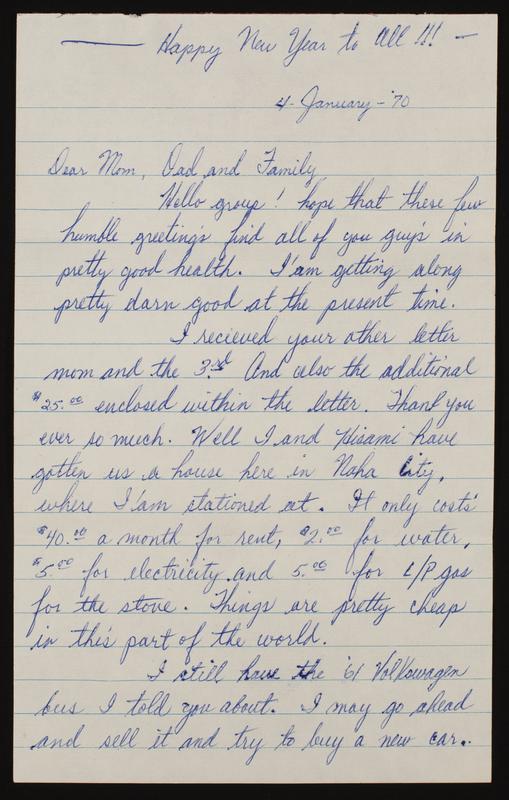 — Happy New Year to all !!! —
4-January-'70
Dear Mom, Dad and Family,
Hello group! hope that these few
humble greeting's find all of you guy's in
pretty good health. I'am getting along
pretty darn good at the present time.
I recieved your other letter
mom and the 3.rd And also the additional
$25.00 enclosed within the letter. Thank you
ever so much. Well I and Hisami have
gotten us a house here in Naha City,
where I'am stationed at. It only costs'
$40.00 a month for rent, $2.00 for water,
$5.00 for electricity and 5.00 for L/P gas
for the stove. Things are pretty cheap
in this part of the world.
I still have the '61 Volkswagen
bus I told you about. I may go ahead
and sell it and try to buy a new car..